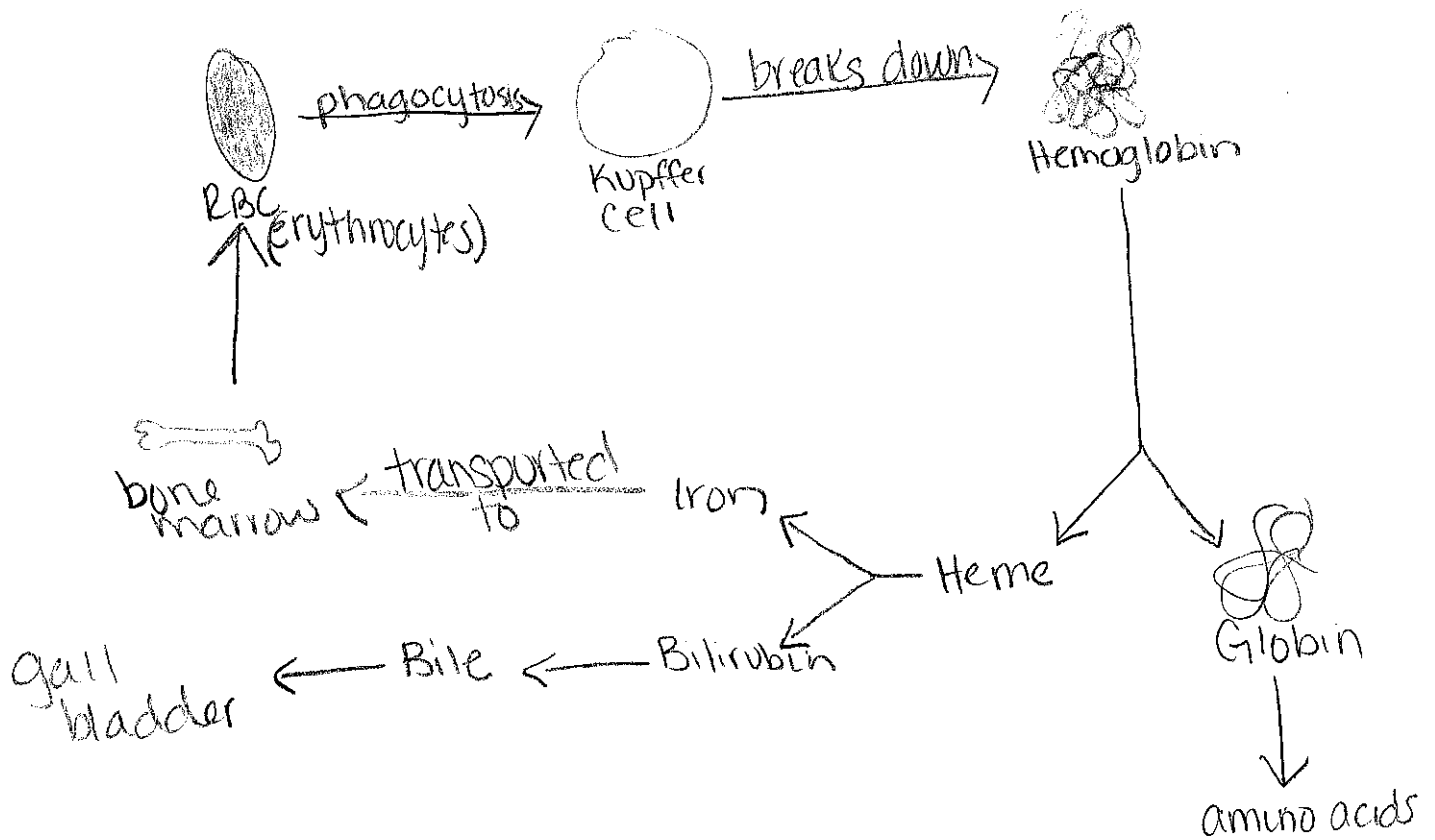 phagocytosis
breaks down
RBC
(erythrocytes)
Kupffer
cell
Hemoglobin
bone
marrow
transported
to
Iron
Heme
Globin
gall
bladder
Bile
Bilirubin
amino acids